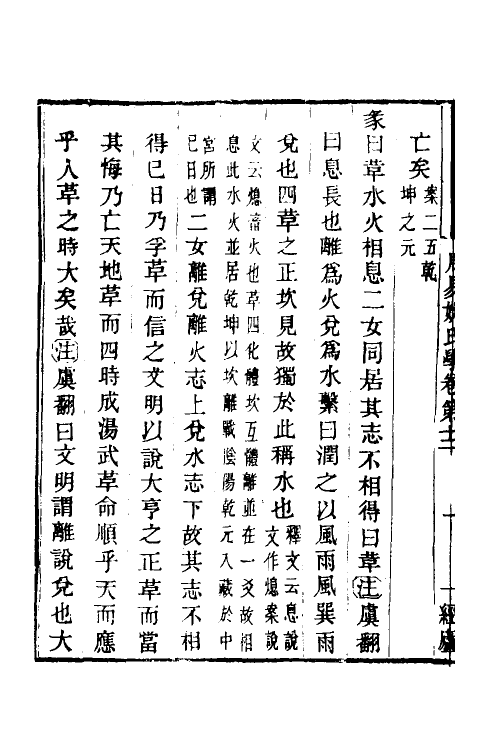 周易姚氏學卷第十二　十　一經廬
亡矣案二五乾
坤之元
彖曰革水火相息二女同居其志不相得曰革注虞翻
曰息長也離爲火兌爲水繫曰潤之以風雨風巽雨
兌也四革之正坎見故獨於此稱水也釋文云息說
文作熄案說
文云熄蓄火也革四化體坎互體離並在一爻故相
息此水火並居乾坤以坎離戰陰陽乾元入藏於中
宮所謂
巳日也二女離兌離火志上兌水志下故其志不相
得巳日乃孚革而信之文明以說大亨之正革而當
其悔乃亡天地革而四時成湯武革命順乎天而應
乎人革之時大矣哉注虞翻曰文明謂離說兌也大